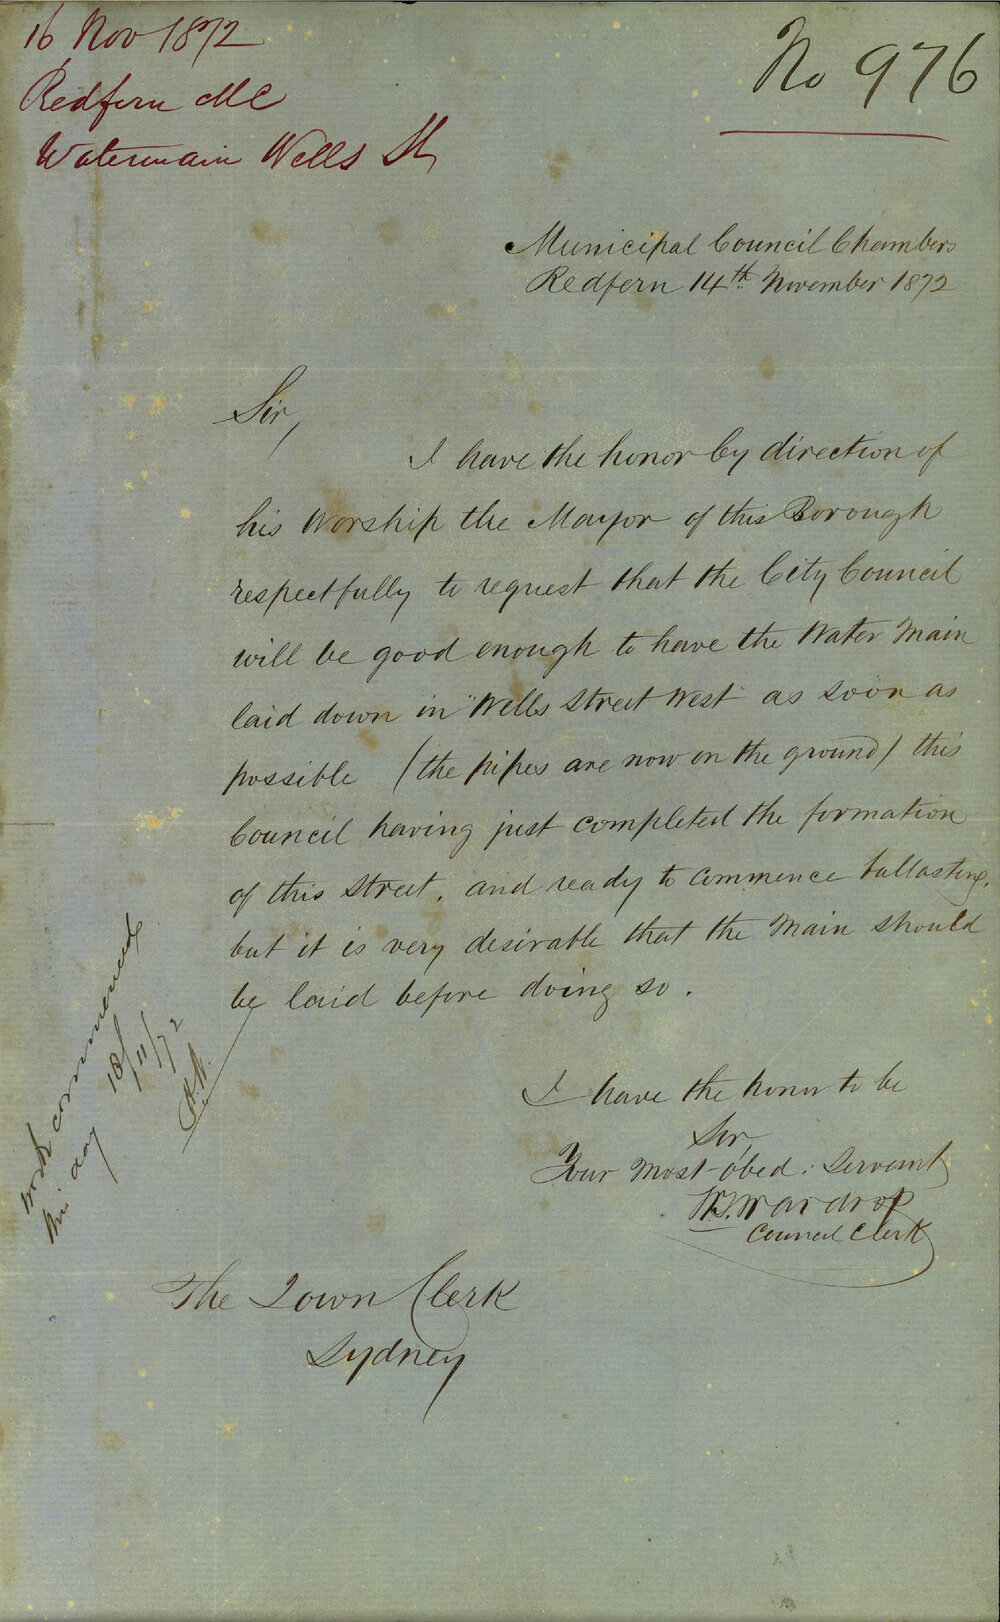 16 Nov 1872
Redfern MC
Watermain Wells St
No 976
Municipal Council Chambers
Redfern 14th November 1872
Sir,
I have the honor by direction of
his Worship the Mayor of this Borough
respectfully to request that the City Council
will be good enough to have the Water Main
laid down in "Wells Street West" as soon as
possible (the pipes are now on the ground) this
Council having just completed the formation
of this Street, and ready to commence ballasting,
but it is very desirable that the Main should
be laid before doing so.
I have the honor to be
Sir,
Your most obed: Servant
Wardrop
Council Clerk
The Town Clerk
Sydney
work commenced
this day 18/11/72